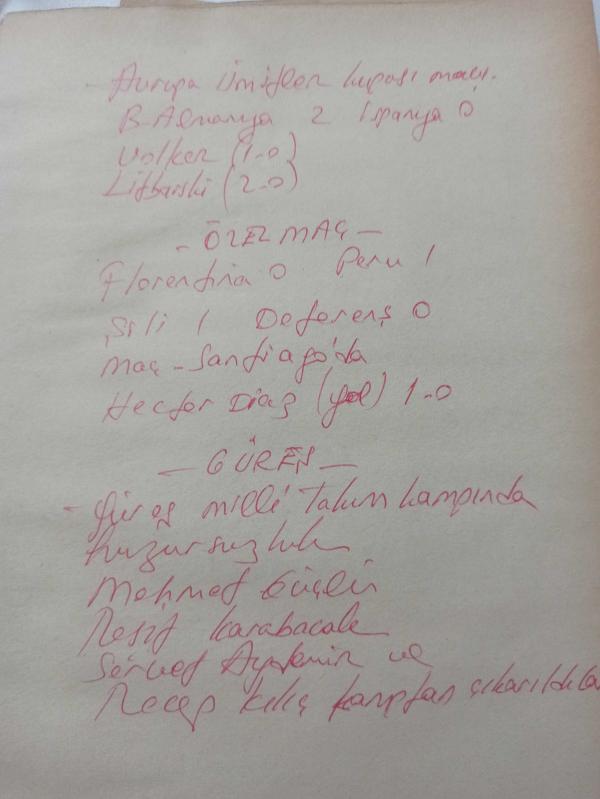 - Avrupa Ümitler kupası maçı.
B. Almanya 2 İspanya 0
Volker (1-0)
Litbarski (2-0)
- ÖZEL MAÇ -
Florentina 0 Peru 1
Şili 1 Deferenş 0
Maç - Santiago'da
Hector Diaz (gol) 1-0
- GÜREŞ -
- Güreş milli Takım kampında
huzursuzluk
Mehmet Güçlü
Reşit Karabacak
Servet Aydemir ve
Recep Kılıç kamptan çıkarıldılar